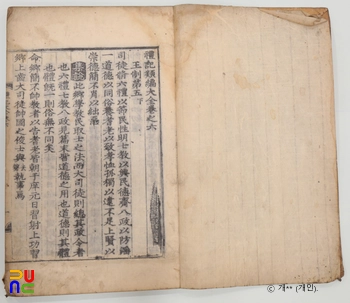 禮記類編大全卷之六
王制第五下
司徒脩六禮以節民性明七敎以興民德齊八政以防淫
一道德以同俗養耆老以致孝恤孤獨以逮不足上賢以
崇德簡不肖以絀惡
集說此鄕學敎民取士之法而大司徒則總其政令者
也六禮七敎八政見篇末皆道德之用也道德則其體
也體旣一則俗無不同矣
命鄕簡不帥敎者以告耆老皆朝于庠元日習射上功習
鄕上齒大司徒帥國之俊士與執事焉
ⓒ 개** (개인).